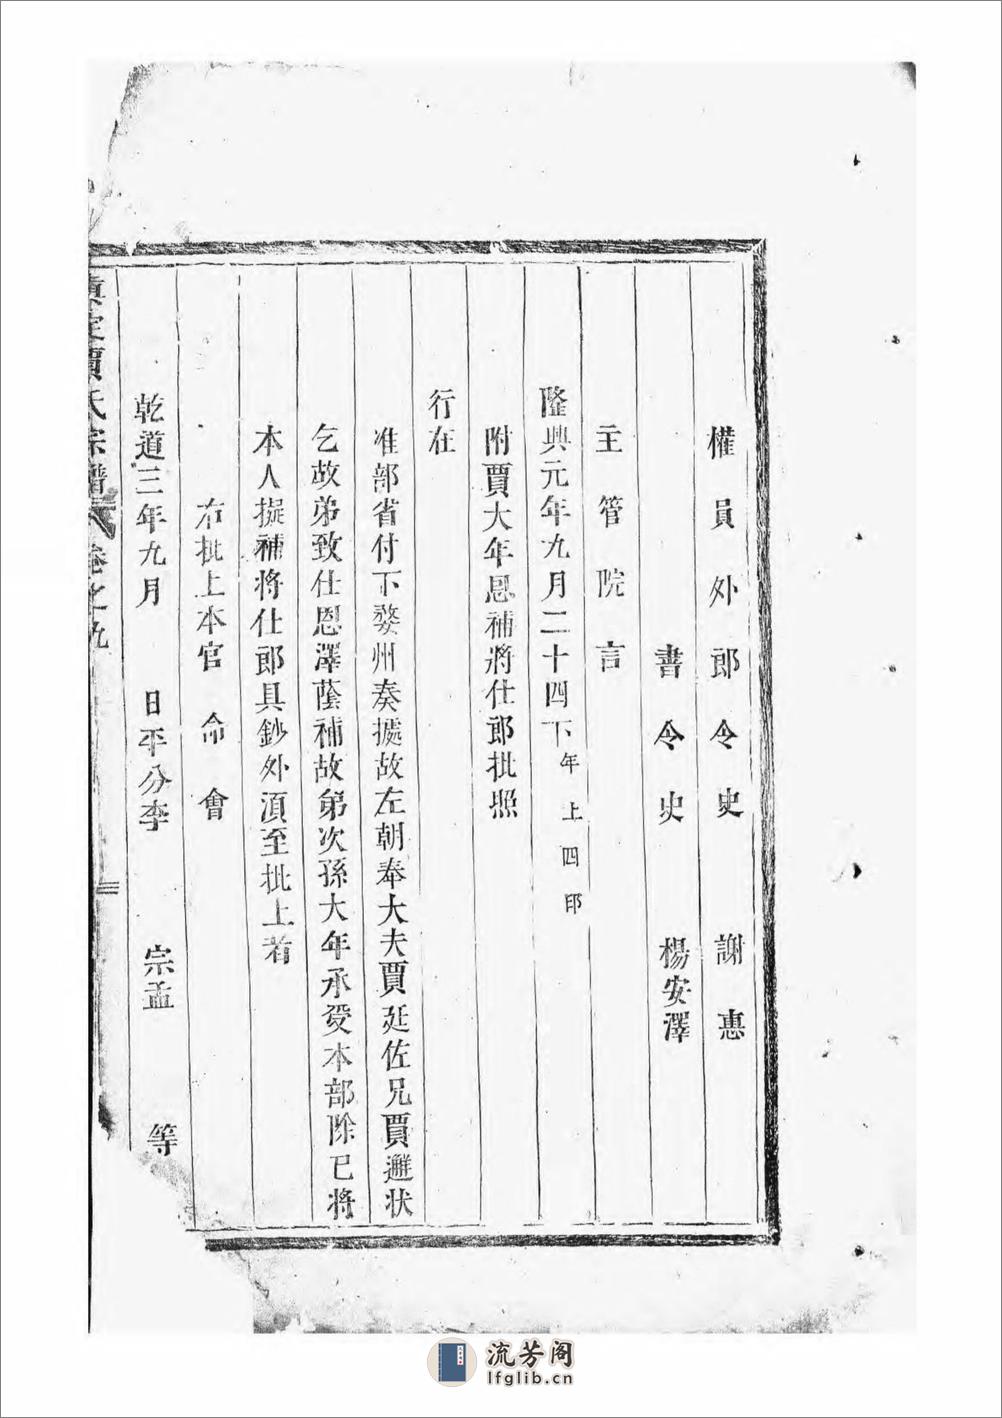 權員外郎令史 謝惠
書令史 楊安澤
主管院言
隆興元年九月二十四下 年上四印
附賈大年恩補將仕郎批照
行在
准部省付下婺州奏據故左朝奉大夫賈廷佐兄賈邂状
乞故弟致仕恩澤蔭補故弟次孫大年承受本部除已將
本人擬補將仕郎具鈔外湏至批上者
右批上本官命會
乾道三年九月 日平分李 宗孟 等
真定賈氏宗譜 卷之九
流芳阁
lfglib.cn